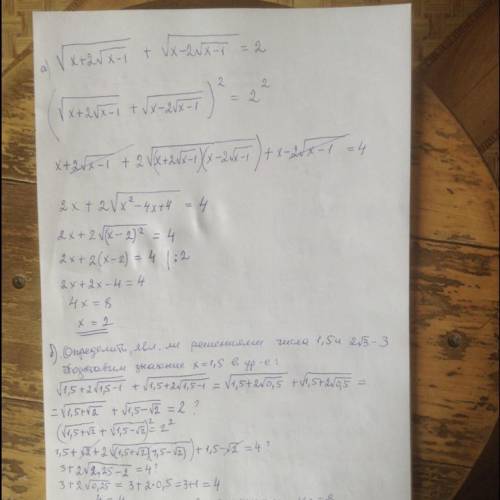 а) √(x+2√(x-1)) + √(x-2√(x-1)) = 2
(√(x+2√(x-1)) + √(x-2√(x-1)))² = 2²
x+2√(x-1) + 2√((x+2√(x-1))(x-2√(x-1))) + x-2√(x-1) = 4
2x + 2√(x²-4x+4) = 4
2x + 2√((x-2)²) = 4
2x + 2(x-2) = 4 |:2
2x + 2x - 4 = 4
4x = 8
x = 2
б) Определить, явл. ли решениями числа 1,5 и 2√3-3
Подставим значение x=1,5 в ур-е:
√(1,5+2√(1,5-1)) + √(1,5+2√(1,5-1)) = √(1,5+2√0,5) + √(1,5+2√0,5) =
= √(1,5+√2) + √(1,5-√2) = 2 ?
(√(1,5+√2) + √(1,5-√2))² = 2²
1,5+√2 + 2√((1,5+√2)(1,5-√2)) + 1,5-√2 = 4?
3+2√(2,25-2) = 4?
3+2√0,25 = 3+2·0,5 = 3+1 = 4
4 = 4